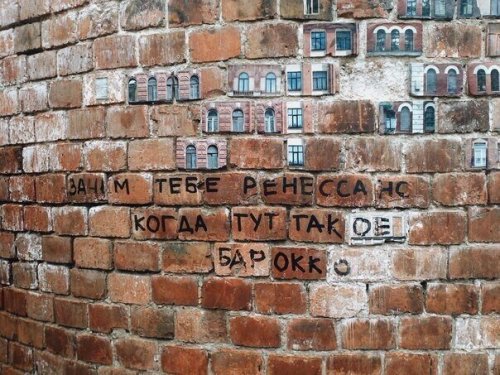 ЗАЧЕМ ТЕБЕ РЕНЕССАНС
КОГДА ТУТ ТАКОЕ
БАРОККО